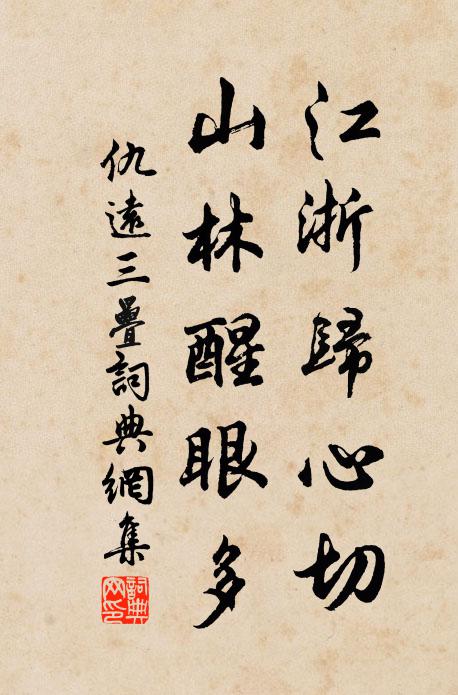 江浙歸心切
山林醒眼多
仇遠三疊詞典網集
詞典網印